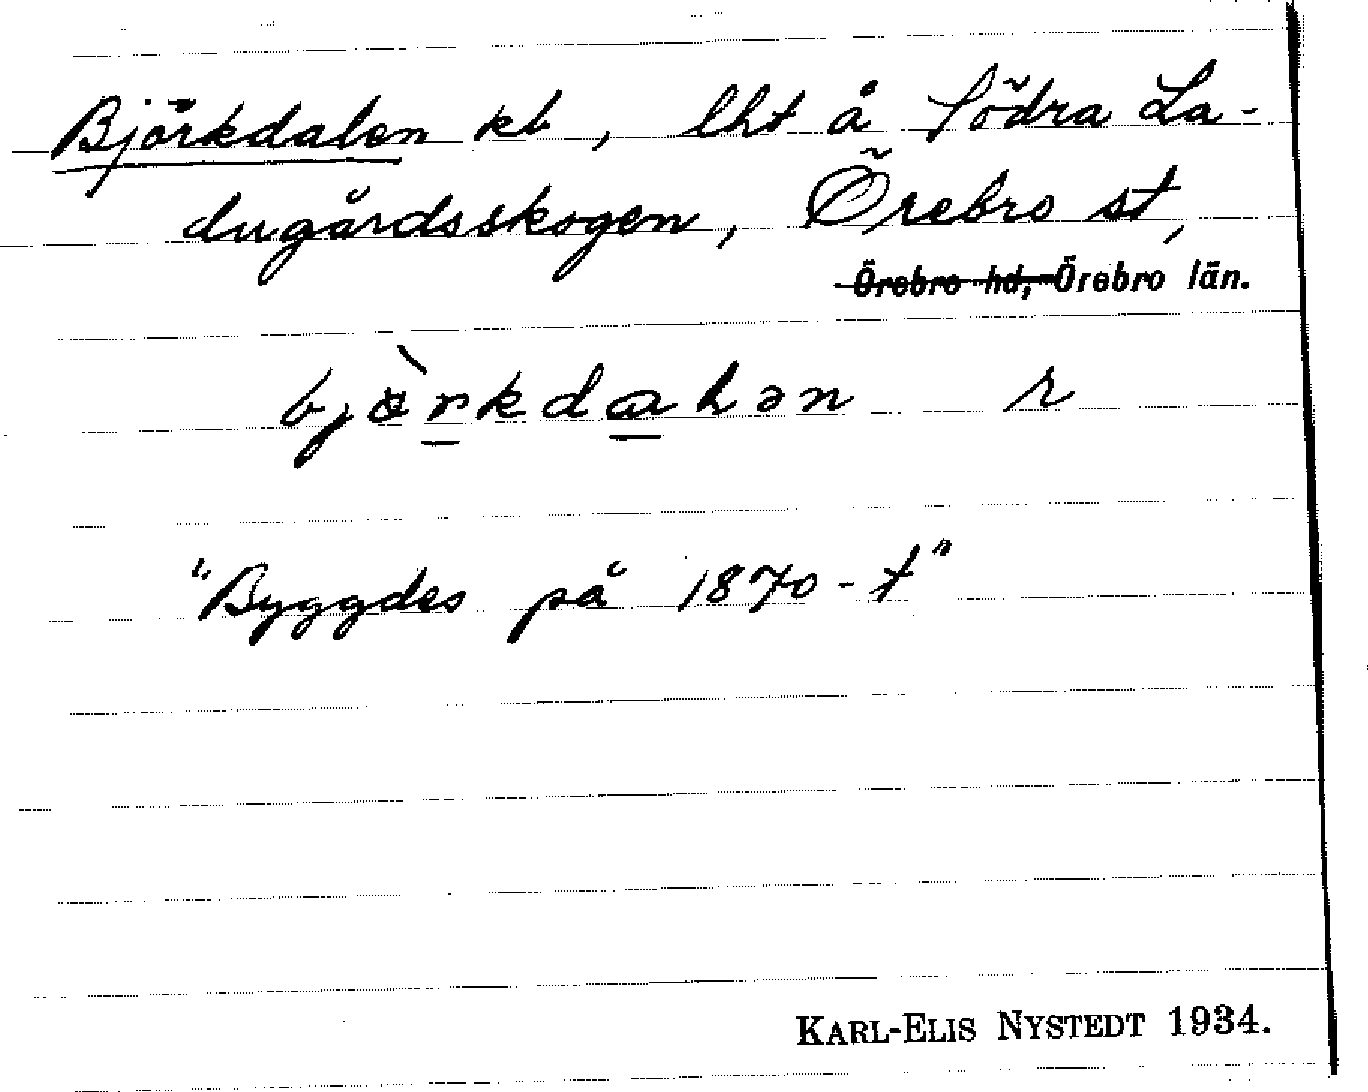 Björkdalen kl, lht å Södra La-
dugårdsskogen, Örebro st,
Örebro hd, Örebro län.
bjò̈rkdaLən r
"Byggdes på 1870-t"
KARL-ELIS NYSTEDT 1934.